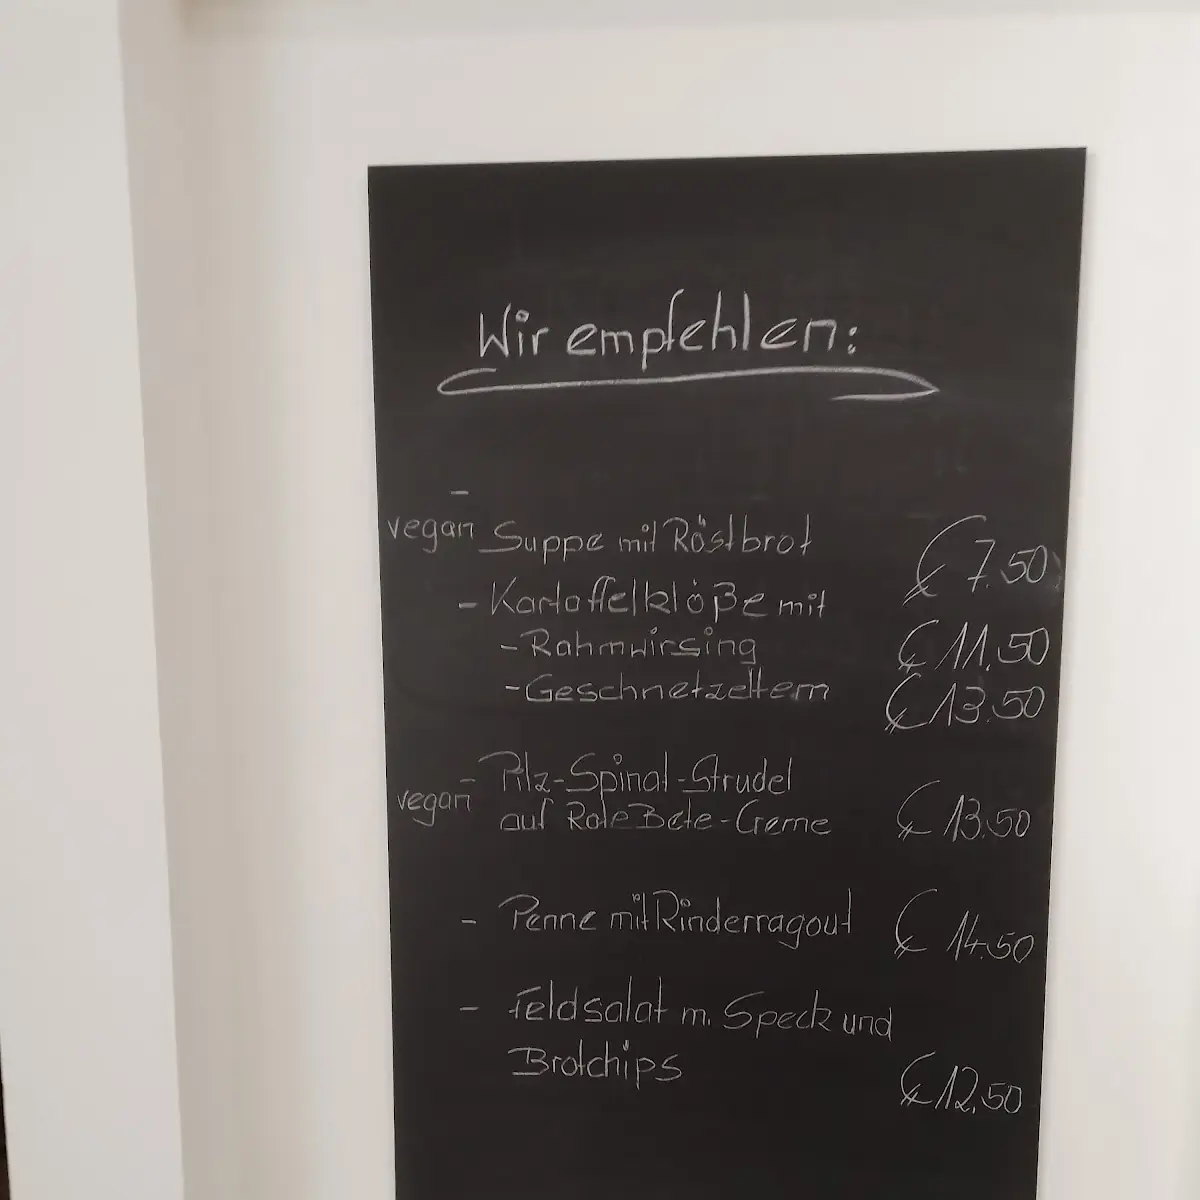 Wir empfehlen:
-
vegan Suppe mit Röstbrot € 7.50
- Kartoffelklöße mit
- Rahmwirsing € 11.50
- Geschnetzeltem € 13.50
- Pilz-Spinat-Strudel
vegan auf Rote Bete-Creme € 13.50
- Penne mit Rinderragout € 14.50
- Feldsalat m. Speck und
Brotchips € 12.50